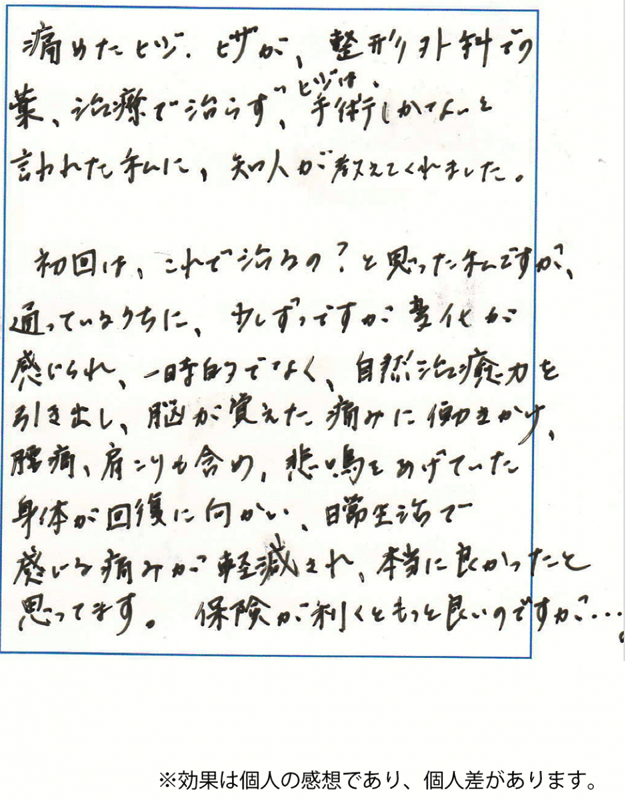 痛めたヒジ、ヒザが、整形外科での
薬、治療で治らず、ヒジは、手術しかないと
言われた私に、知人が教えてくれました。
初回は、これで治るの？と思った私ですが、
通っているうちに、少しずつですが変化が
感じられ、一時的でなく、自然治癒力を
引き出し、脳が覚えた痛みに働きかけ、
腰痛、肩こりも含め、悲鳴をあげていた
身体が回復に向かい、日常生活で
感じる痛みが軽減され、本当に良かったと
思ってます。保険が利くともっと良いのですが…。
※効果は個人の感想であり、個人差があります。